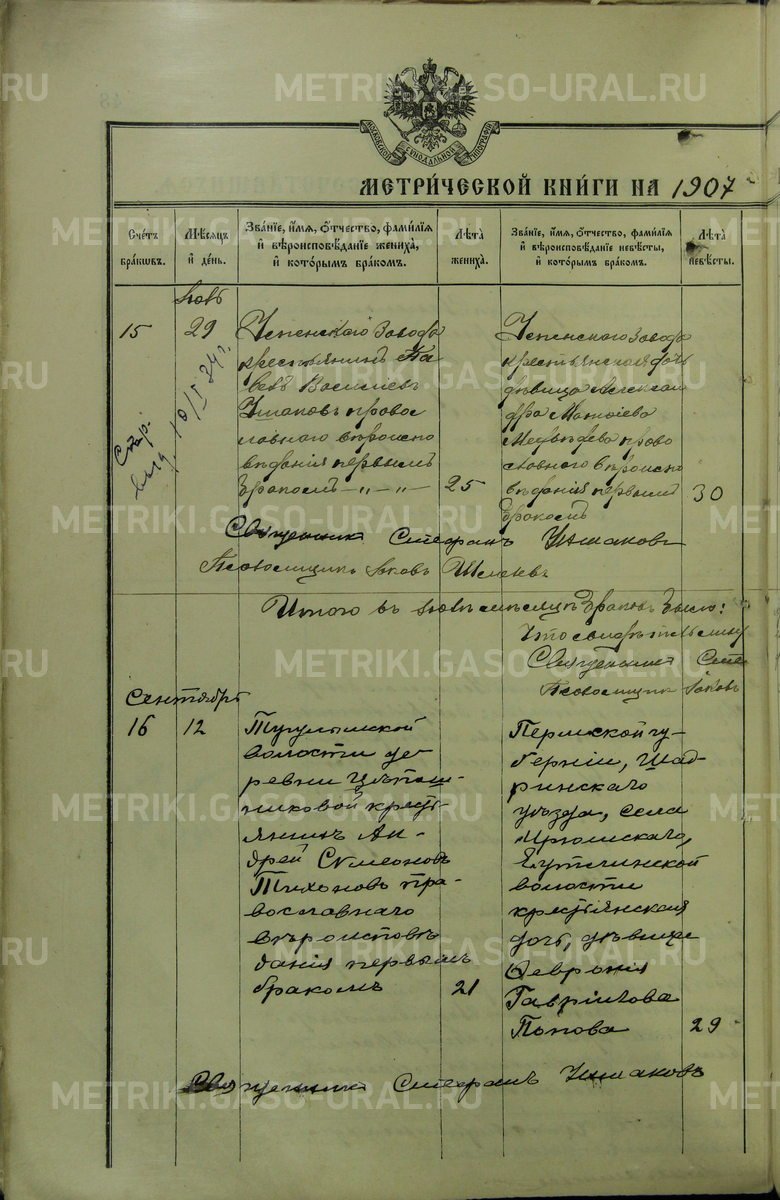 METRIKI.GASO-URAL.RU
МОСКОВСКОЙ СѴНОДАЛЬНОЙ ТИПОГРАФІИ
МЕТРИ́ЧЕСКОЙ КНИ́ГИ НА 1907
Сче́тъ бра́кѡвъ.
Мѣсяцъ и҆ де́нь.
Зва́нїе, и҆́мѧ, ѻ҆́тчество, фами́лїѧ и҆ вѣроисповѣ́данїе жениха̀, и҆ кото́рымъ бра́комъ.
Лѣта̀ жениха̀.
Зва́нїе, и҆́мѧ, ѻ҆́тчество, фами́лїѧ и҆ вѣроисповѣ́данїе невѣ́сты, и҆ кото́рымъ бра́комъ.
Лѣта̀ невѣ́сты.
15
29
Успенскаго завода
крестьянинъ Па
велъ Васильевъ
Ушаковъ право
славнаго вѣроиспо
вѣданія первымъ
бракомъ —„—„—
25
Успенскаго завода
крестьянская дочь
дѣвица Алексан
дра
Медвѣдева право
славнаго вѣроиспо
вѣданія первымъ
бракомъ
30
10/I 24 г.
Священникъ Стефанъ Ушаковъ
Псаломщикъ Іаковъ
Итого въ мѣсяцѣ браковъ было:
Что свидѣтельству
Священникъ Сте
Псаломщикъ Іаковъ
Сентябрь
16
12
Тугулымской
волости де-
ревни
никовой кресть-
янинъ Ан-
дрей Симеоновъ
Тихоновъ пра-
вославнаго
вѣроисповѣ
данія первымъ
бракомъ
21
Пермской гу-
берніи, Шад-
ринскаго
уѣзда, села
волости
крестьянская
дочь, дѣвица
Февронія
Гавріилова
Попова
29
Священникъ Стефанъ Ушаковъ